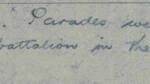 " Parades we
battalion in the